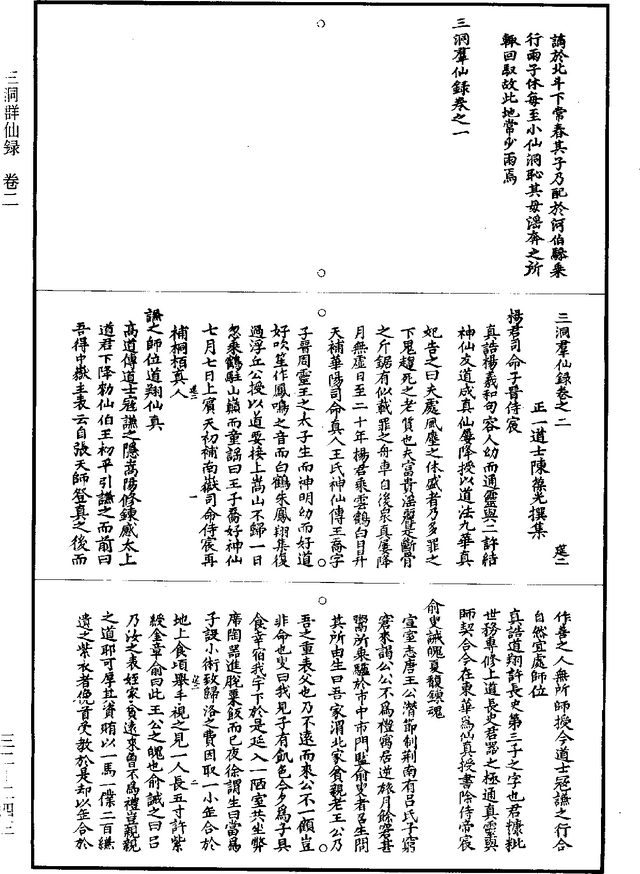 三洞群仙録　卷二
三二—二四三
誦於北斗下常春其子乃配於河伯驂乘
行雨子休每至小仙洞恥其母淫奔之所
輒回馭故此地常少雨焉
三洞羣仙録卷之一
三洞羣仙録卷之二
正一道士陳葆光撰集
楊君司命子晉侍宸
真誥楊羲和句容人幼而通靈與二許結
神仙友道成真仙屢降授以道法九華真
妃告之曰夫處風塵之休盛者乃多罪之
下鬼趨死之老質也夫富貴淫麗是斷骨
之斤鋸有似載罪之舟車自後泉真屢降
月無虛日至二十年楊君乘雲鶴白日升
天補華陽司命真人王氏神仙傳王喬字
子晉周靈王之太子生而神明幼而好道
好吹笙作鳳鳴之音而白鶴朱鳳翔集復
過浮丘公授以道要接上嵩山不歸一日
忽乘鶴駐山巔而童謡曰王子喬好神仙
七月七日上賓天初補南嶽司命侍宸再
補桐栢真人
謙之師位道翔仙真
高道傳道士寇謙之隱嵩陽修鍊感太上
道君下降勑仙伯王初平引謙之而前曰
吾得中嶽主表云自張天師登真之後而
作善之人無所師授今道士冠謙之行合
自然宜處師位
真誥道翔許長史第三子之字也君糠粃
世務專修上道長史君器之極通真靈與
師契合今在東華爲仙真授書除侍帝宸
俞叟誡魄夏馥鍊魂
宣室志唐王公潛節制荆南有吕氏子窮
窘來謁公公不爲禮寓居逆旅月餘窘甚
鬻所乘驢於市中市門監俞叟者召生問
其所由生曰吾家渭北家貧親老王公乃
吾之重表父也乃不遠而來公不一顧豈
非命也叟曰我見子有飢色今夕爲子具
食幸宿我宇下於是延入一陋室共坐弊
席陶器進脫粟飯而已夜徐謂生曰當爲
子設小術致歸洛之費因取一小缶合於
地上食頃舉手視之見一人長五寸許紫
綬金章俞曰此王公之魄也俞誡之曰吕
乃汝之表姪家貧遠來曾不爲禮豈親親
之道耶可厚其資賄以一馬一僕二百縑
遺之紫衣者俛首受教於是却以缶合於